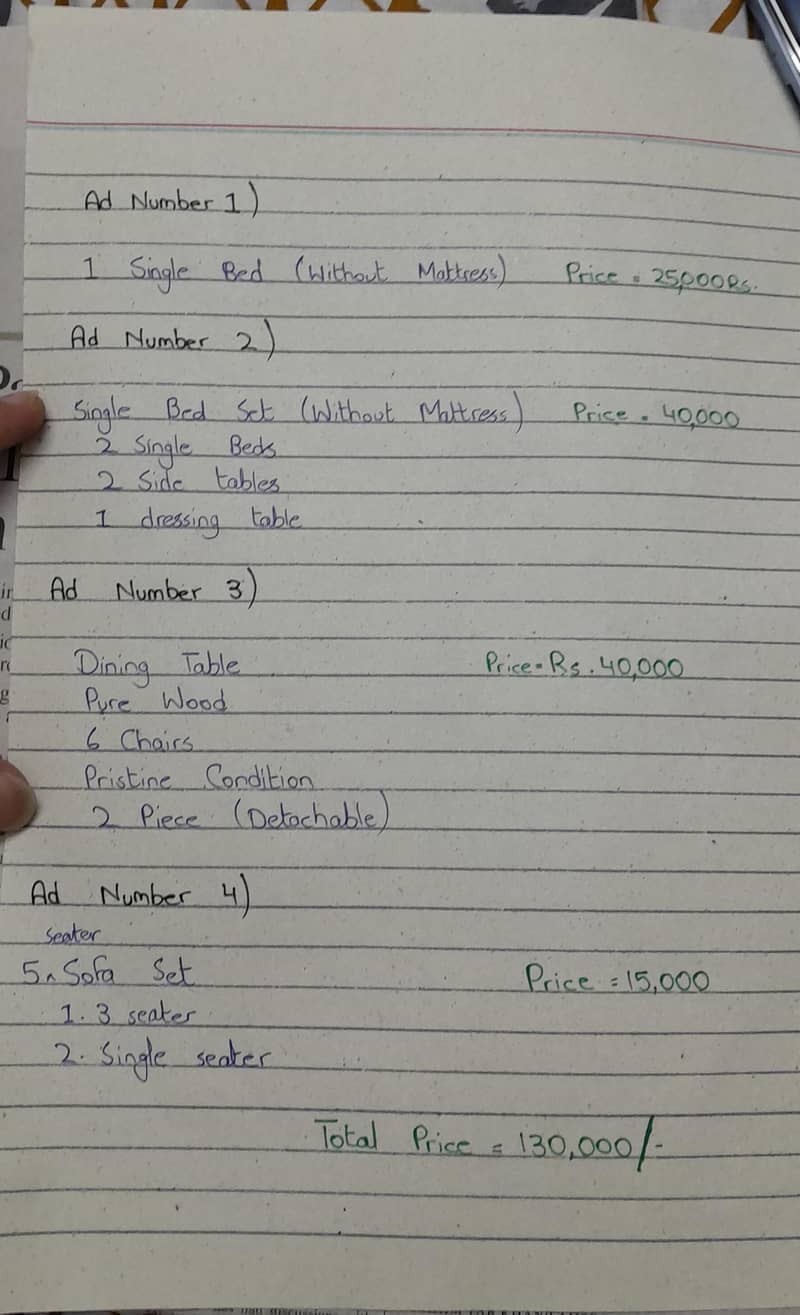 Ad Number 1)
1 Single Bed (Without Mattress) Price = 25,000Rs.
Ad Number 2)
Single Bed Set (Without Mattress) Price = 40,000
2 Single Beds
2 Side tables
1 dressing table
Ad Number 3)
Dining Table Price = Rs. 40,000
Pure Wood
6 Chairs
Pristine Condition
2 Piece (Detachable)
Ad Number 4)
seater
5^Sofa Set Price = 15,000
1. 3 seater
2. Single seater
Total Price = 130,000/-